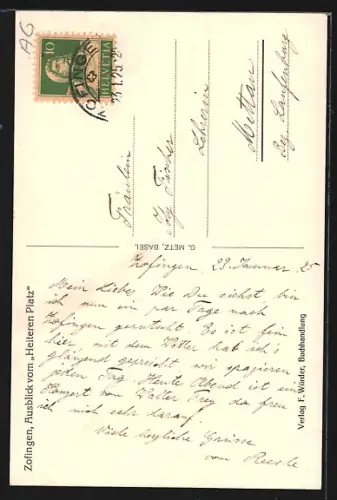 AG
10
HELVETIA
ZOFINGEN
23.1.25
Fräulein
Fischer
Lehrerin
Mettau
Bez. Laufenburg
G. METZ, BASEL
Zofingen, 23. Januar 25
Mein Lieber! Wie Du siehst bin
ich nun ein par Tage nach
Zofingen gerutscht. Es ist fein
hier, mit dem Wetter hab ich's
glänzend wir spazieren
jeden Tag. Heute Abend ist ein
Konzert von Walter Frey da freu
ich mich sehr darauf.
Viele herzliche Grüsse
vom
Zofingen, Ausblick vom „Heiteren Platz"
Verlag F. Würder, Buchhandlung